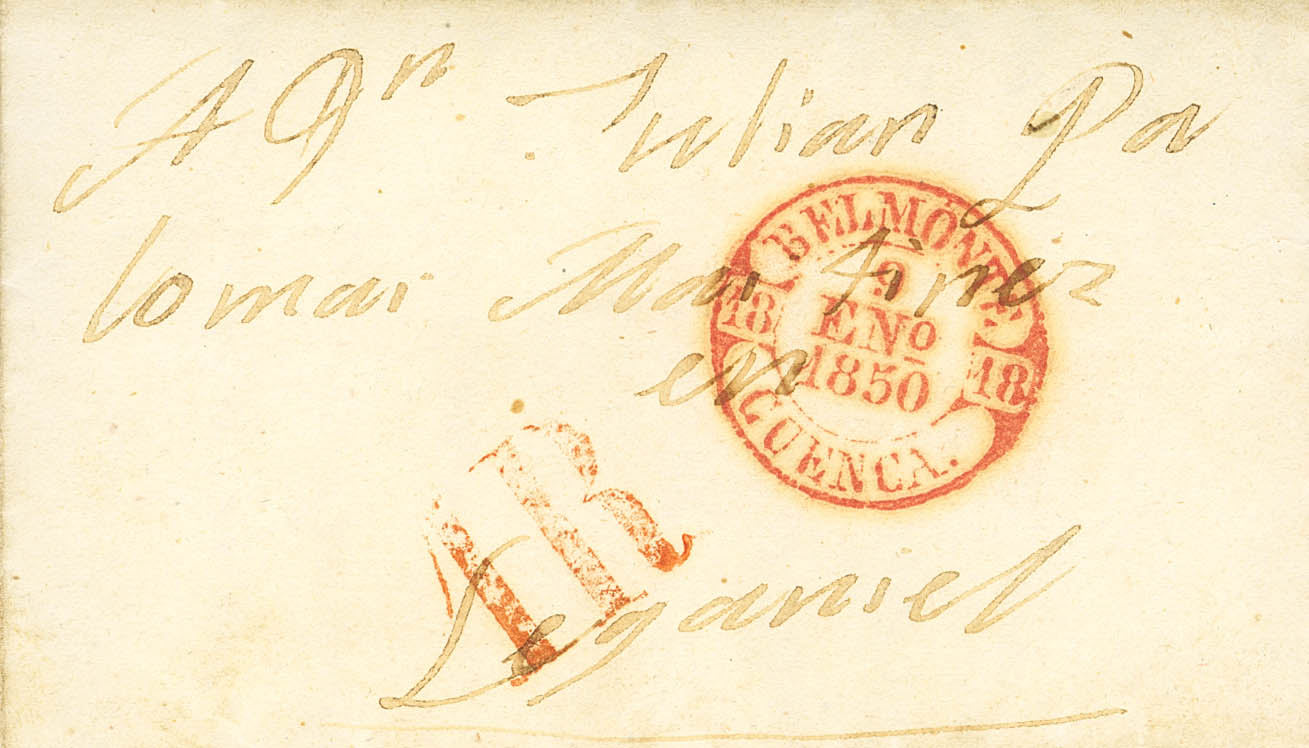 A Dn Julian Pa
lomar Martinez
en
Leganiel
BELMONTE
9
ENº
1850
18 18
CUENCA.
1R